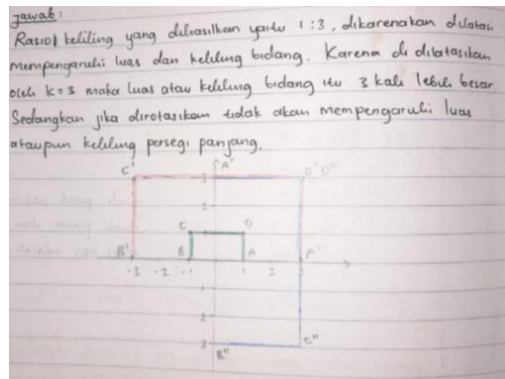 Jawab:
Rasio keliling yang dihasilkan yaitu 1:3, dikarenakan dilatasi
mempengaruhi luas dan keliling bidang. Karena di dilatasikan
oleh k=3 maka luas atau keliling bidang itu 3 kali lebih besar
Sedangkan jika dirotasikan tidak akan mempengaruhi luas
ataupun keliling persegi panjang.
C' 3 A" D' D"
2
C D
B' B A A'
-3 -2 -1 1 2
1
2
3 B" C"